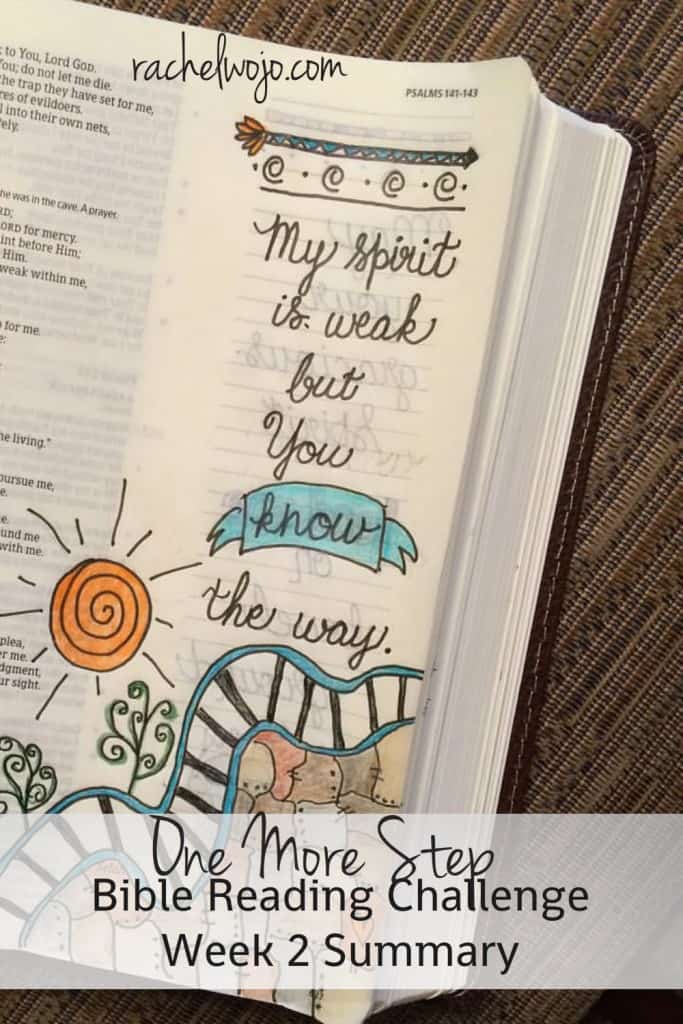 rachelwojo.com
PSALMS 141-143
to You, Lord GOD.
You; do not let me die.
the trap they have set for me,
res of evildoers.
l into their own nets,
ely.
he was in the cave. A prayer.
RD;
ORD for mercy.
int before Him;
Him.
weak within me,
for me.
e:
he living."
pursue me,
e.
e.
ound me
with me.
plea,
er me.
dgment,
ur sight.
My spirit
is weak
but
You
know
the way.
One More Step
Bible Reading Challenge
Week 2 Summary